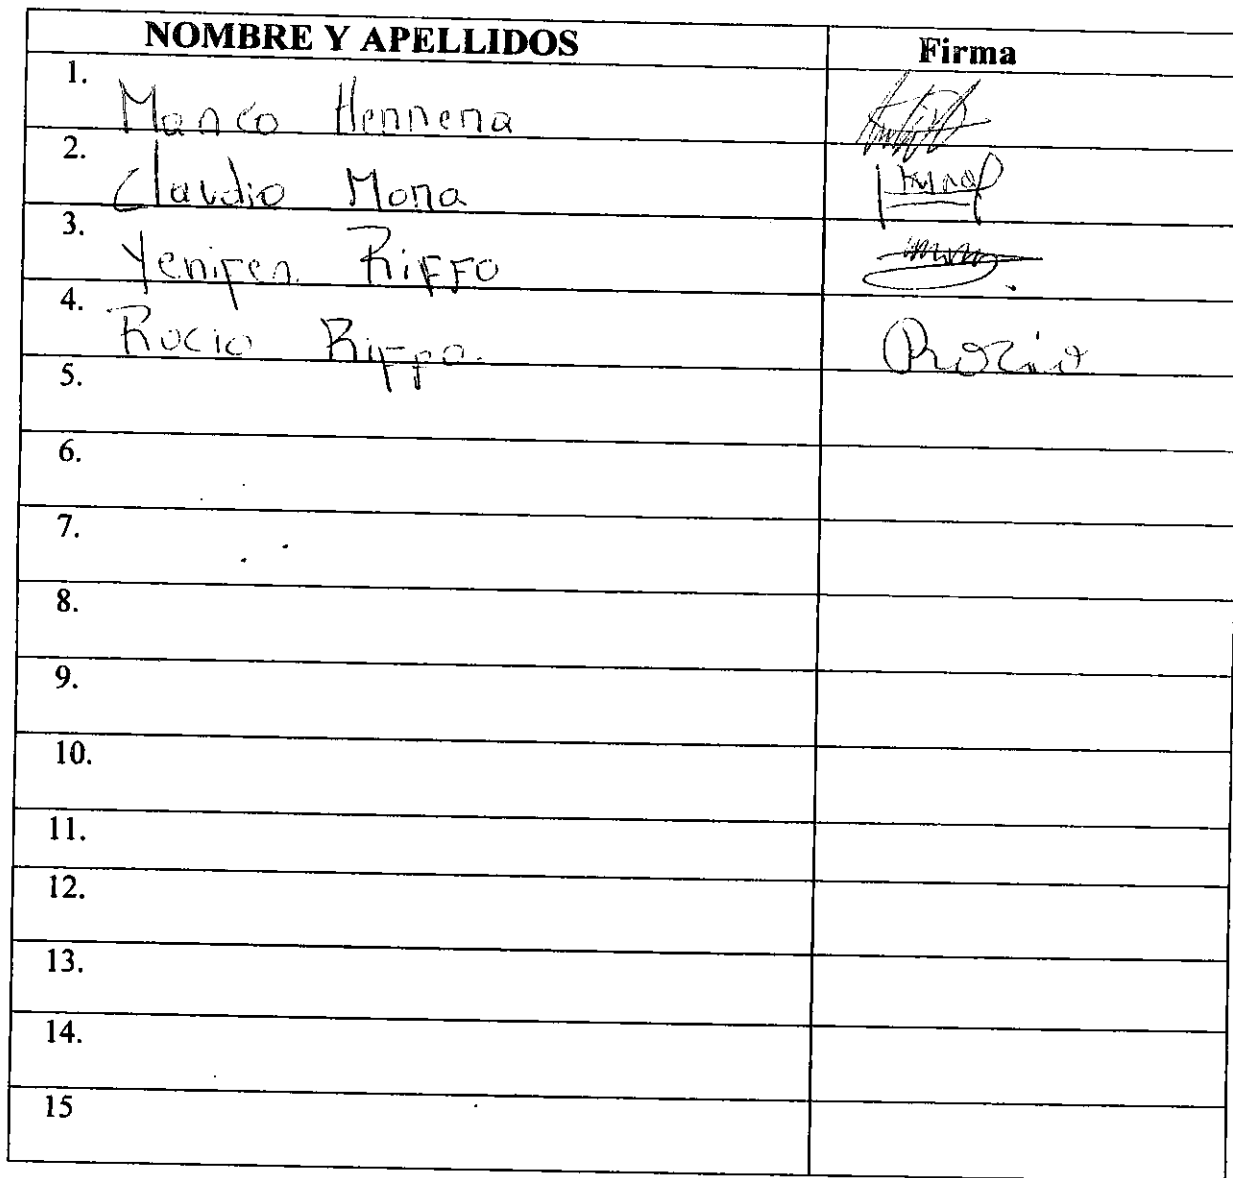 NOMBRE Y APELLIDOS Firma
1. Marco Herrera
2. Claudio Mora
3. Yenifer Riffo
4. Rocio Riffo. Rocio
5.
6.
7.
8.
9.
10.
11.
12.
13.
14.
15